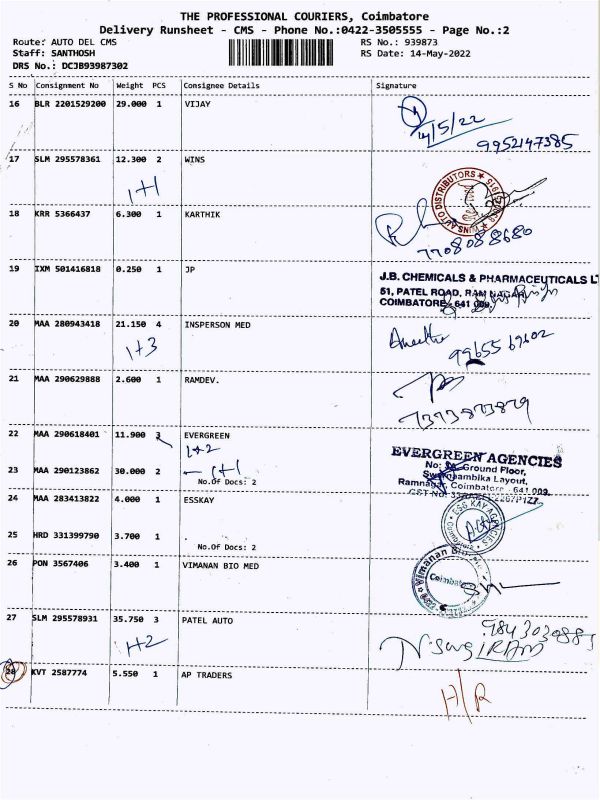 THE PROFESSIONAL COURIERS, Coimbatore
Delivery Runsheet - CMS - Phone No.:0422-3505555 - Page No.:2
Route: AUTO DEL CMS RS No.: 939873
Staff: SANTHOSH RS Date: 14-May-2022
DRS No.: DCJB93987302
S No Consignment No Weight PCS Consignee Details Signature
16 BLR 2201529200 29.000 1 VIJAY
14/5/22
9952147385
17 SLM 295578361 12.300 2 WINS
1+1
WINS AUTO DISTRIBUTORS
18 KRR 5366437 6.300 1 KARTHIK
7708088680
19 IXM 501416818 0.250 1 JP
J.B. CHEMICALS & PHARMACEUTICALS LT
51, PATEL ROAD, RAM NAGAR
COIMBATORE - 641 009.
20 MAA 280943418 21.150 4 INSPERSON MED
1+3
99655 69602
21 MAA 290629888 2.600 1 RAMDEV.
7373873879
22 MAA 290618401 11.900 3 EVERGREEN
1+2
EVERGREEN AGENCIES
No: Ground Floor,
Swarnambika Layout,
Ramnagar Coimbatore - 641 009.
23 MAA 290123862 30.000 2 1+1
No.Of Docs: 2
24 MAA 283413822 4.000 1 ESSKAY
ESS KAY AGENCIES
Coimbatore
25 HRD 331399790 3.700 1
No.Of Docs: 2
26 PON 3567406 3.400 1 VIMANAN BIO MED
Vimanan Bio
Coimbatore
27 SLM 295578931 35.750 3 PATEL AUTO
1+2
28 KVT 2587774 5.550 1 AP TRADERS
H/R